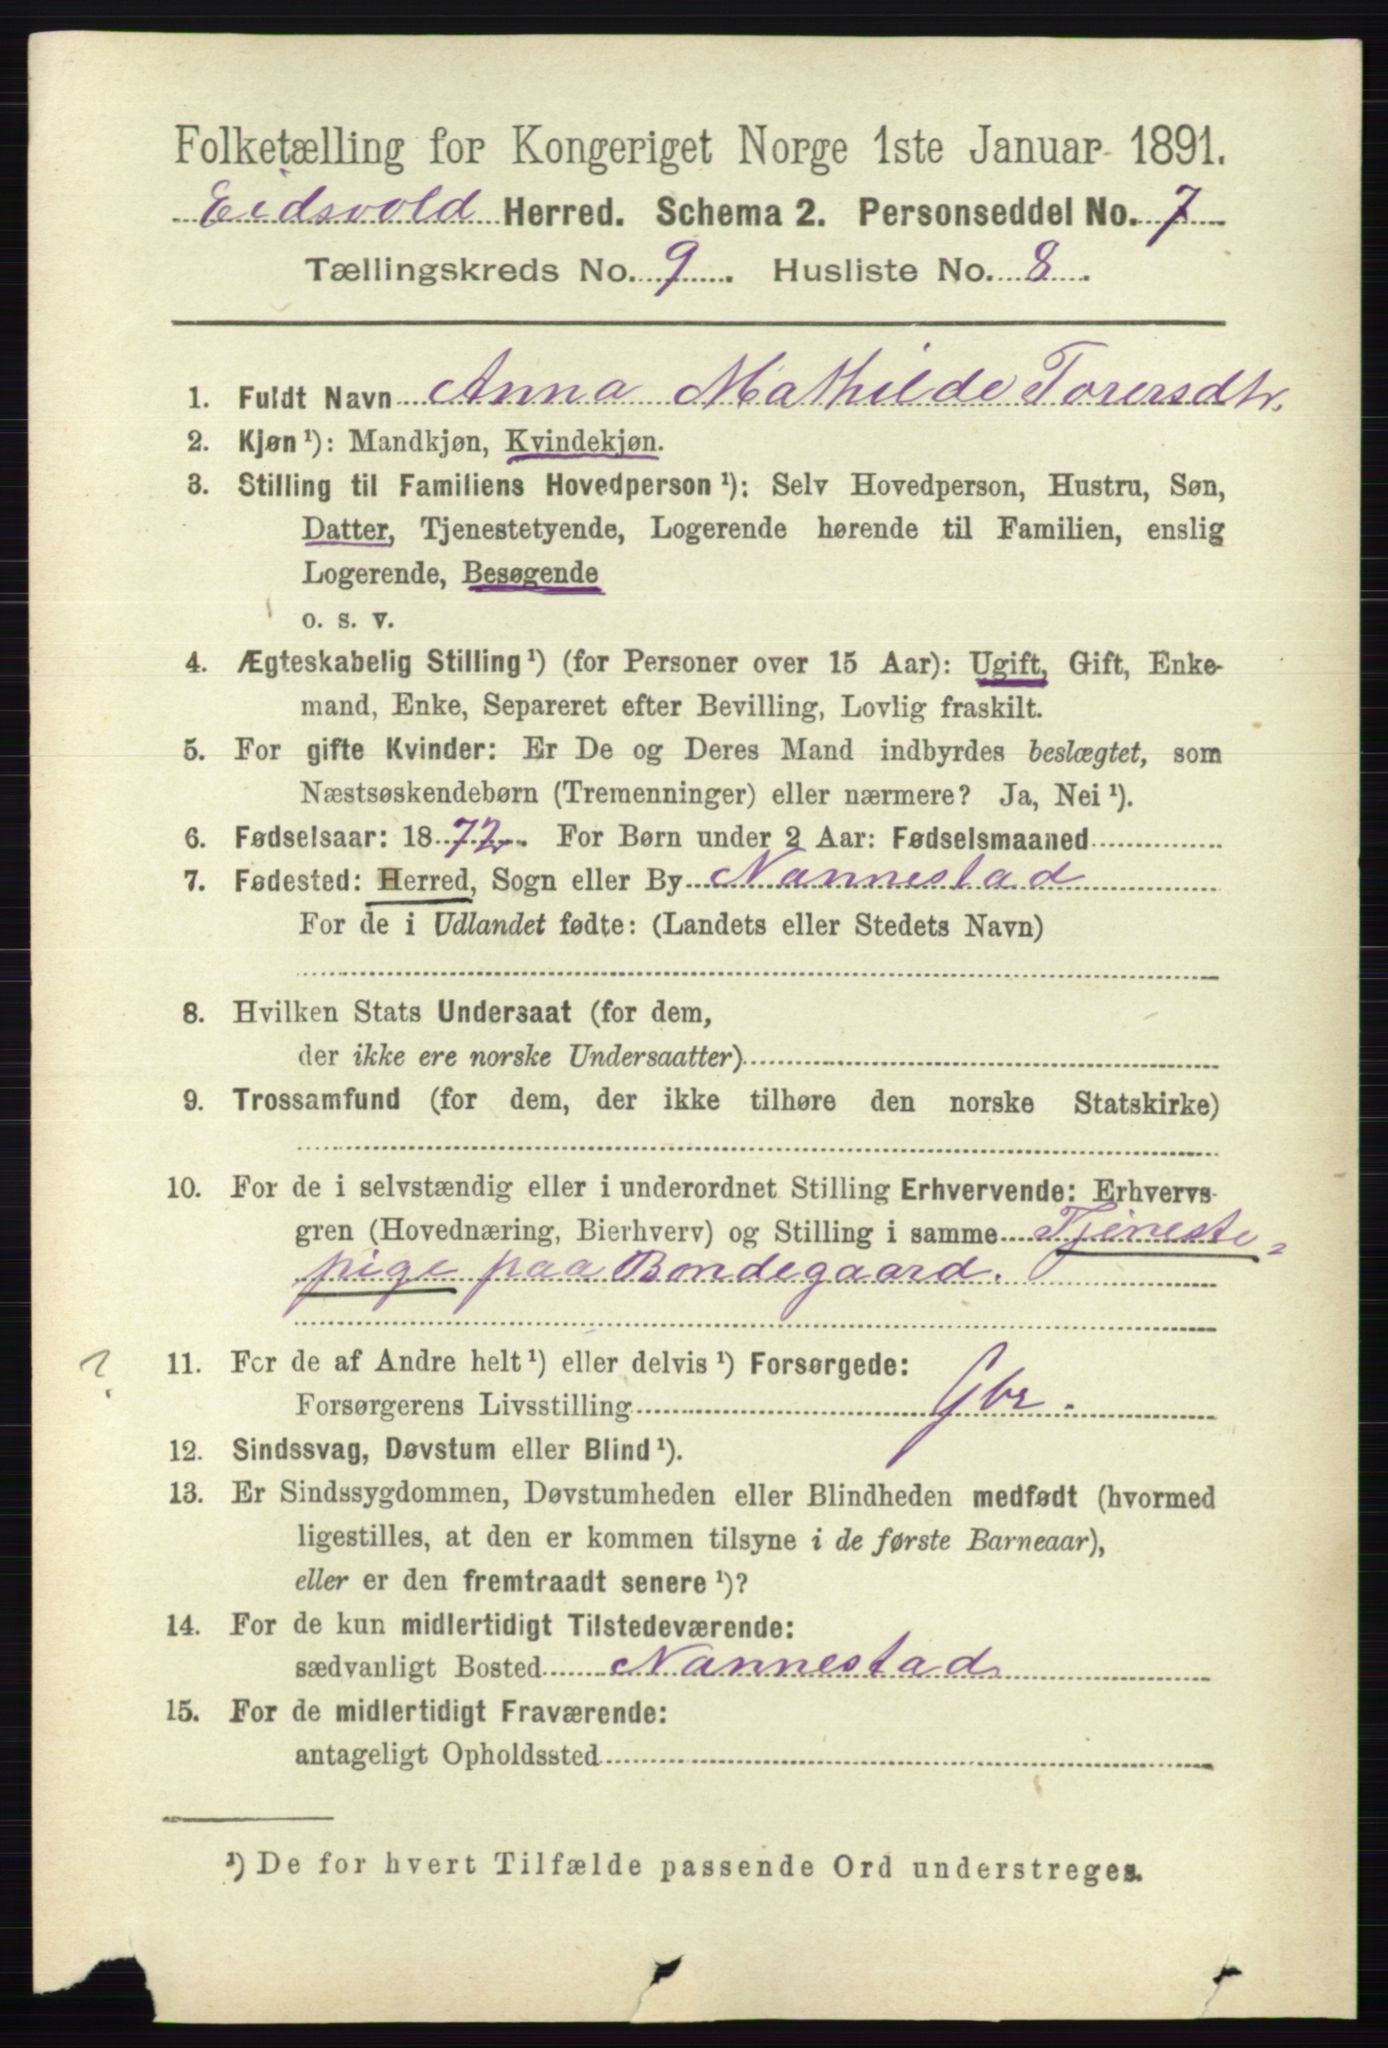 Folketælling for Kongeriget Norge 1ste Januar 1891.
Eidsvold Herred. Schema 2. Personseddel No. 7
Tællingskreds No. 9. Husliste No. 8.
1. Fuldt Navn Anna Mathilde Torersdtr.
2. Kjøn ¹): Mandkjøn, Kvindekjøn.
3. Stilling til Familiens Hovedperson ¹): Selv Hovedperson, Hustru, Søn,
Datter, Tjenestetyende, Logerende hørende til Familien, enslig
Logerende, Besøgende
o. s. v.
4. Ægteskabelig Stilling ¹) (for Personer over 15 Aar): Ugift, Gift, Enke-
mand, Enke, Separeret efter Bevilling, Lovlig fraskilt.
5. For gifte Kvinder: Er De og Deres Mand indbyrdes beslægtet, som
Næstsøskendebørn (Tremenninger) eller nærmere? Ja, Nei ¹).
6. Fødselsaar: 1872. For Børn under 2 Aar: Fødselsmaaned
7. Fødested: Herred, Sogn eller By Nannestad
For de i Udlandet fødte: (Landets eller Stedets Navn)
8. Hvilken Stats Undersaat (for dem,
der ikke ere norske Undersaatter)
9. Trossamfund (for dem, der ikke tilhøre den norske Statskirke)
10. For de i selvstændig eller i underordnet Stilling Erhvervende: Erhvervs-
gren (Hovednæring, Bierhverv) og Stilling i samme Tjeneste-
pige paa Bondegaard.
? 11. For de af Andre helt ¹) eller delvis ¹) Forsørgede:
Forsørgerens Livsstilling Gbr.
12. Sindssvag, Døvstum eller Blind ¹).
13. Er Sindssygdommen, Døvstumheden eller Blindheden medfødt (hvormed
ligestilles, at den er kommen tilsyne i de første Barneaar),
eller er den fremtraadt senere ¹)?
14. For de kun midlertidigt Tilstedeværende:
sædvanligt Bosted Nannestad
15. For de midlertidigt Fraværende:
antageligt Opholdssted
¹) De for hvert Tilfælde passende Ord understreges.